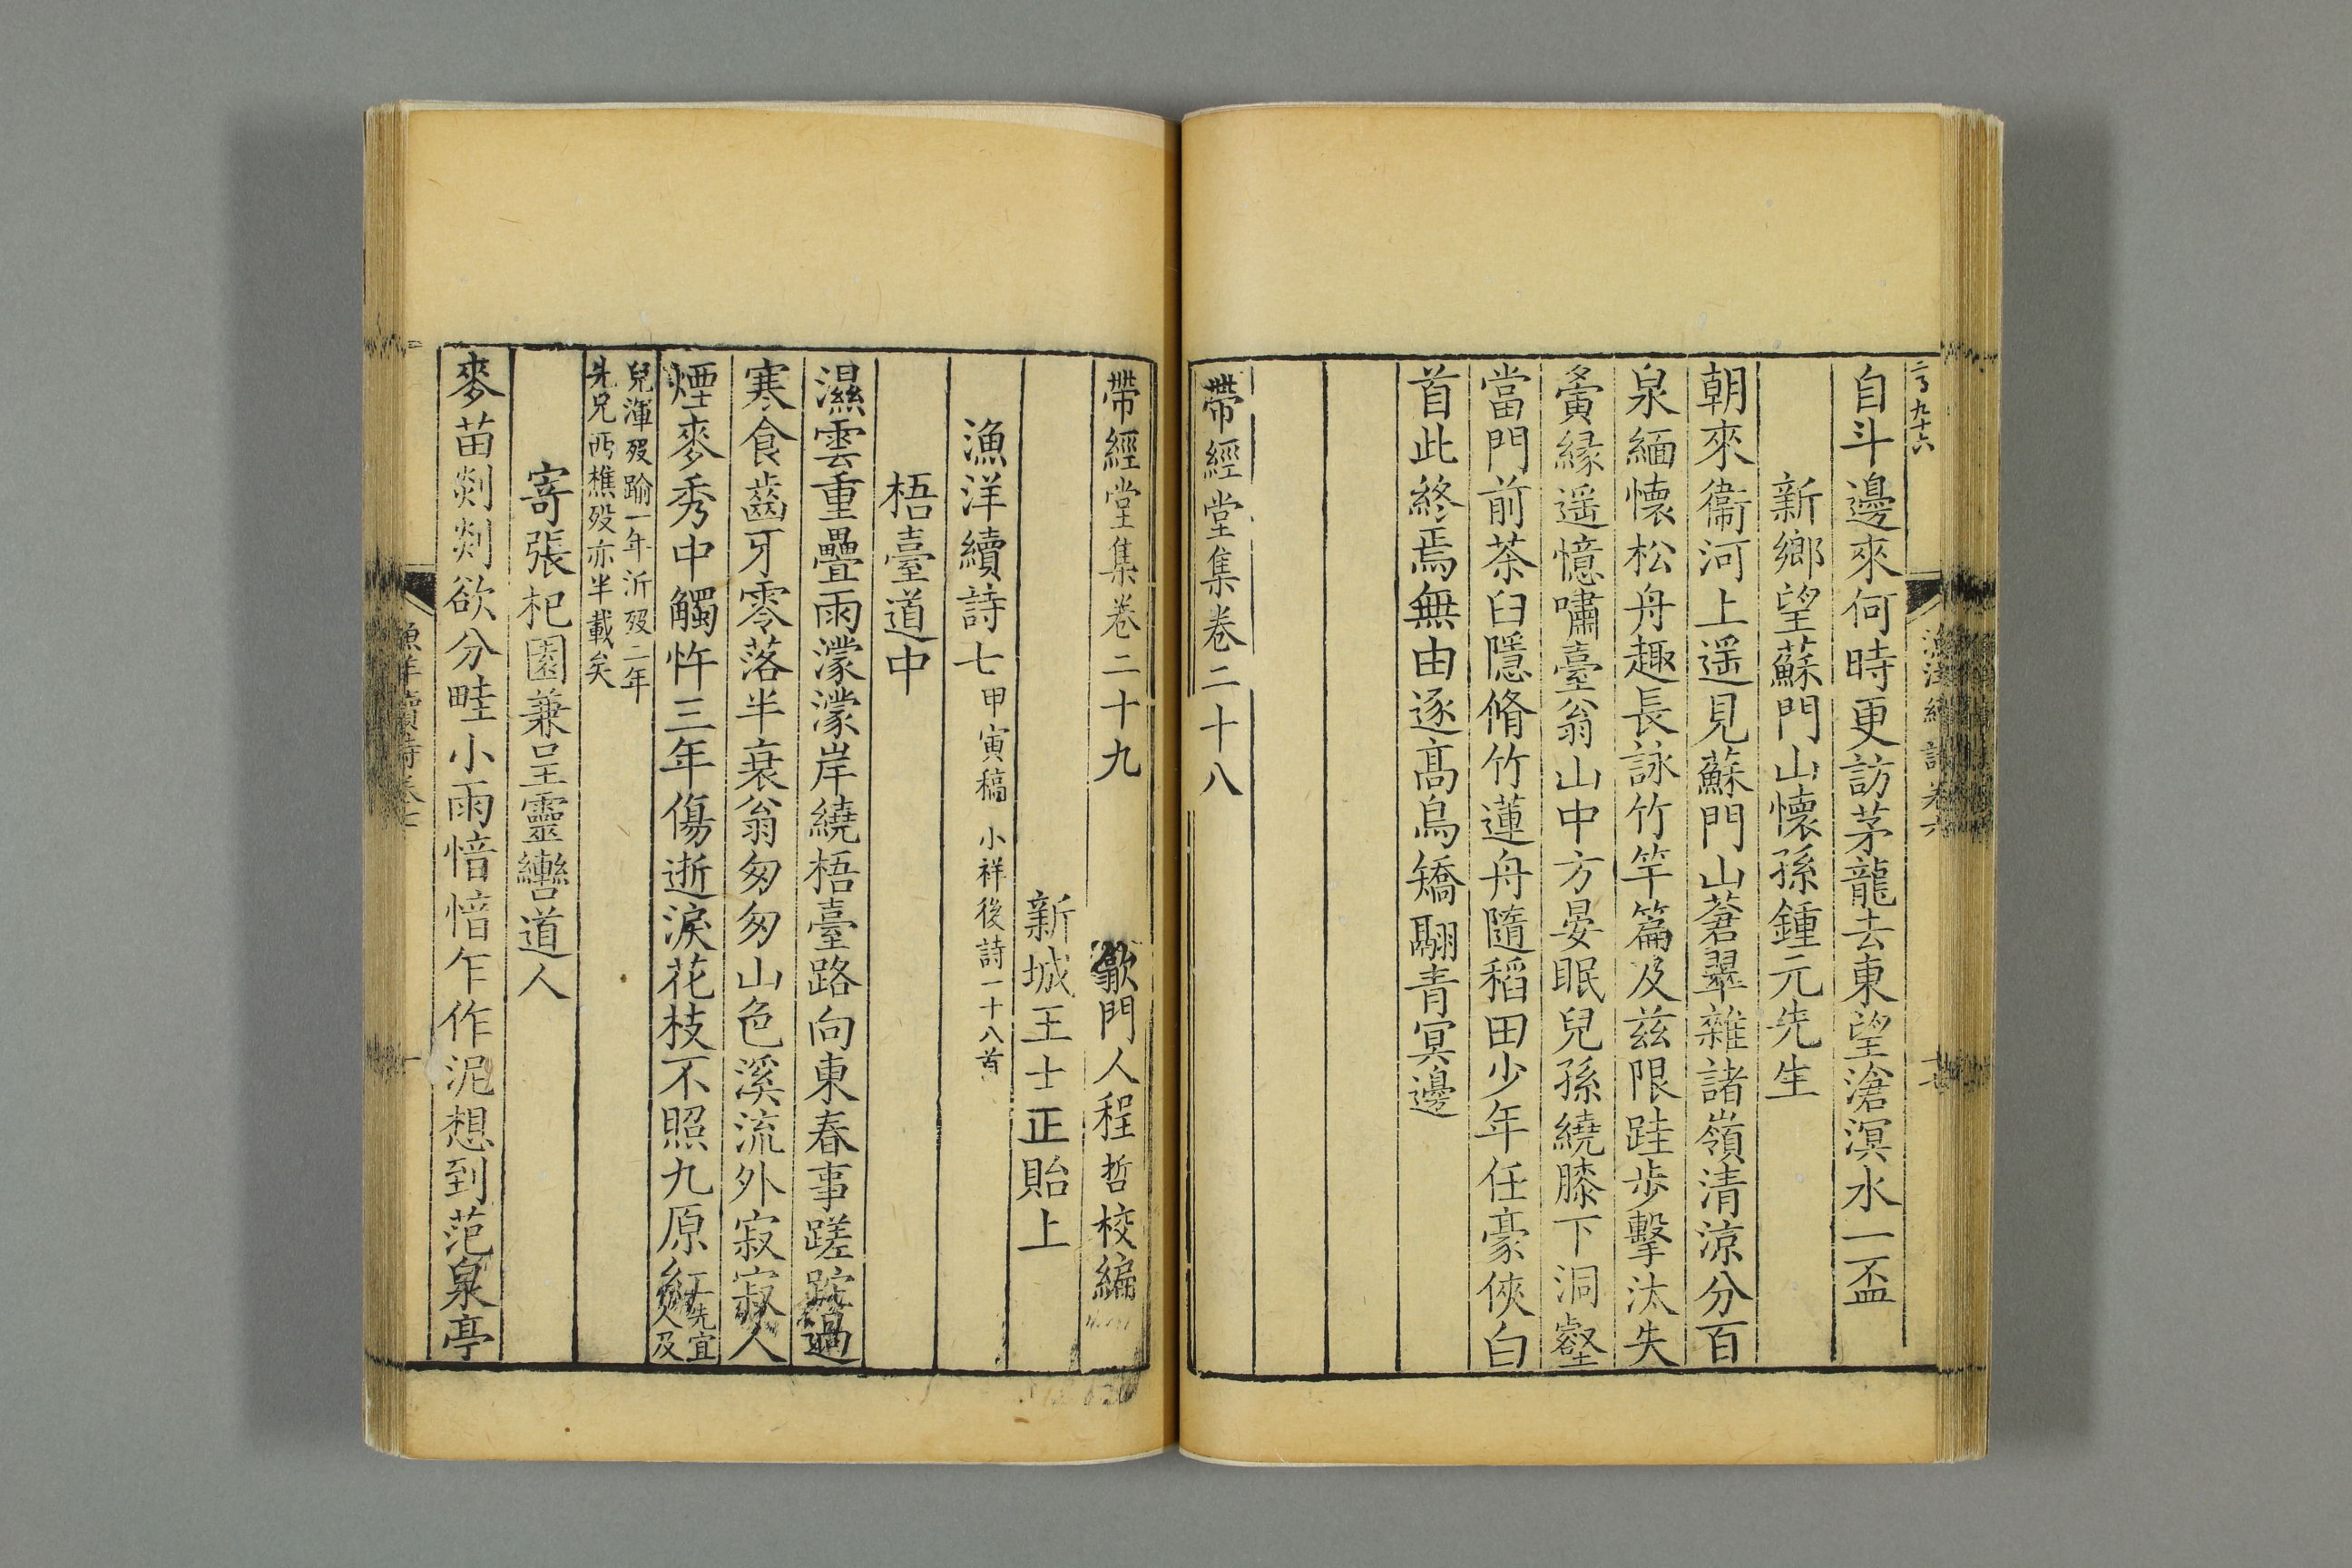 自斗邊來何時更訪茅龍去東望滄溟水一盃
新鄉望蘇門山懷孫鍾元先生
朝來衞河上遥見蘇門山蒼翠雜諸嶺清涼分百
泉緬懷松舟趣長詠竹竿篇及兹限跬歩擊汰失
夤縁遥憶嘯臺翁山中方晏眠兒孫繞膝下洞壑
當門前茶臼隱脩竹蓮舟隨稻田少年任豪俠白
首此終焉無由逐髙鳥矯翮青冥邊
帶經堂集卷二十八
帶經堂集卷二十九
歙門人程哲校編
新城王士正貽上
漁洋續詩七 甲寅稿 小祥後詩一十八首
梧臺道中
濕雲重疊雨濛濛岸繞梧臺路向東春事蹉跎過
寒食齒牙零落半衰翁匆匆山色溪流外寂寂人
煙麥秀中觸忤三年傷逝淚花枝不照九原紅 先宜人及
兒渾歿踰一年沂歿二年
先兄西樵歿亦半載矣
寄張杞園兼呈靈轡道人
麥苗剡剡欲分畦小雨愔愔乍作泥想到范泉亭
漁洋續詩卷七